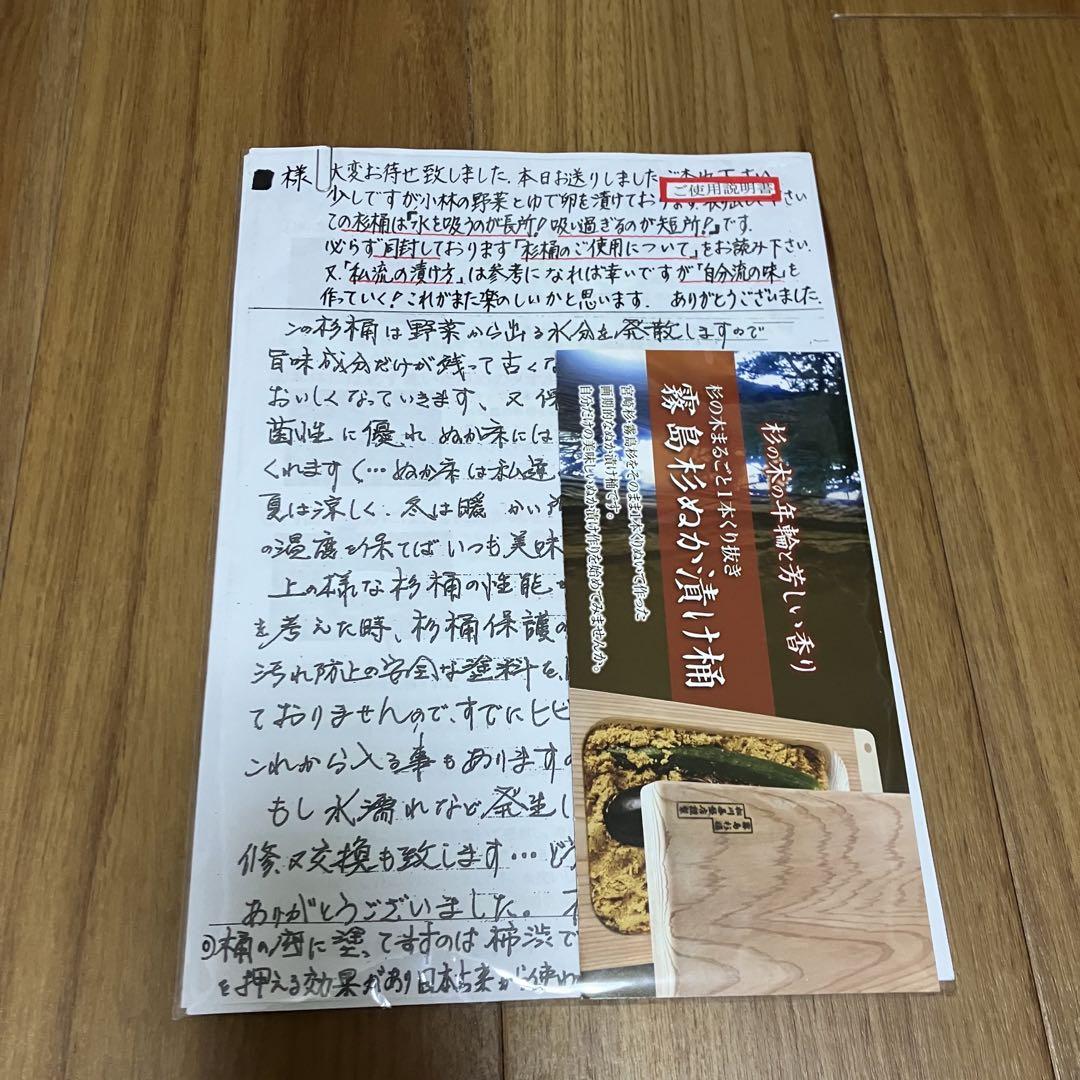 様
大変お待せ致しました。本日お送りしました
ご使用説明書
少しですが小林の野菜とゆで卵を漬けてお
この杉桶は「水を吸うのが長所!吸い過ぎるのが短所!」です。
必らず同封しております「杉桶のご使用について」をお読み下さい。
又、「私流の漬け方」は参考になれば幸いですが「自分流の味」を
作っていく!これがまた楽のしいかと思います。 ありがとうございました。
この杉桶は野菜から出る水分を発散しますので
旨味成分だけが残って古くな
おいしくなっていきます、又保
菌性に優れぬか床には
くれます(…ぬか床は私達
夏は涼しく、冬は暖かい
の温度を保てばいつも美味
上の様な杉桶の性能
を考えた時、杉桶保護の
汚れ防止の安全な塗料を
ておりませんので、すでにヒビ
これから入る事もあります
もし水濡れなど発生し
修、又交換も致します…ど
ありがとうございました。
桶の底に塗ってますのは柿渋で
を押える効果があり日本古来から使わ
杉の木の年輪と芳しい香り
杉の木まるごと1本くり抜き
霧島杉ぬか漬け桶
宮崎杉・霧島杉をそのまま1本くりぬいて作った
画期的なぬか漬け桶です。
自分だけの美味しいぬか漬け作りを始めてみませんか。